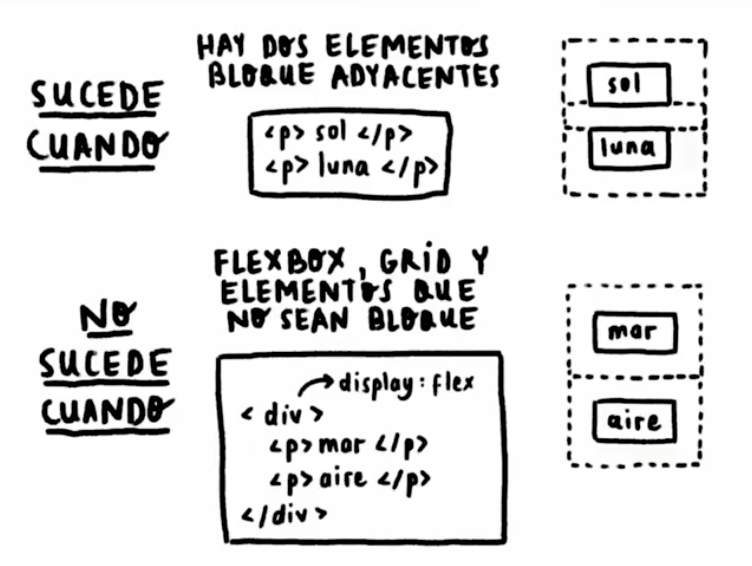 SUCEDE
CUANDO
HAY DOS ELEMENTOS
BLOQUE ADYACENTES
<p> sol </p>
<p> luna </p>
sol
luna
NO
SUCEDE
CUANDO
FLEXBOX, GRID Y
ELEMENTOS QUE
NO SEAN BLOQUE
display: flex
<div>
<p> mar </p>
<p> aire </p>
</div>
mar
aire